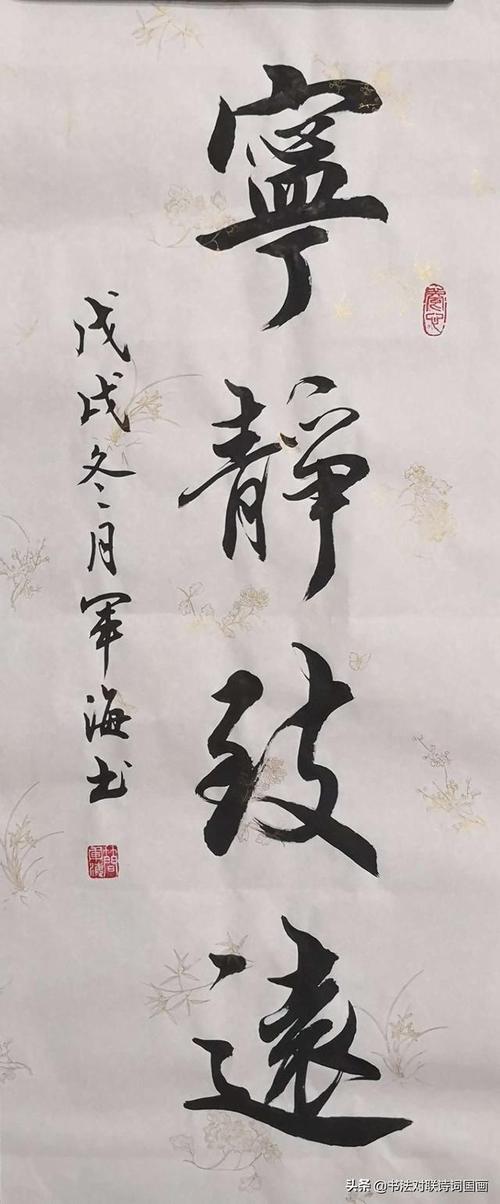 寧靜致遠
戊戌冬月軍海书
簡軍海
头条 @书法对联诗词国画